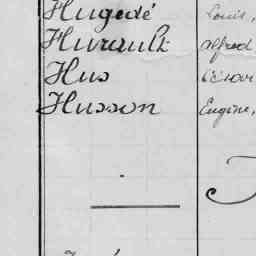 Hugedé Louis,
Hurault Alfred
Hus
Husson Eugène,